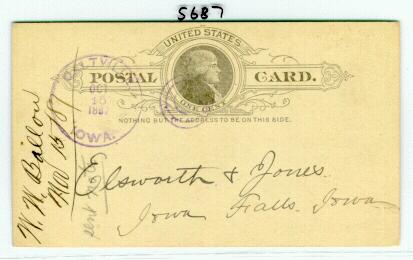 5687
UNITED STATES
POSTAL CARD.
ONE CENT
NOTHING BUT THE ADDRESS TO BE ON THIS SIDE.
OCT
1887
IOWA.
W. W. Ballou
Nov 16 87
Elsworth & Jones.
Iowa Falls, Iowa